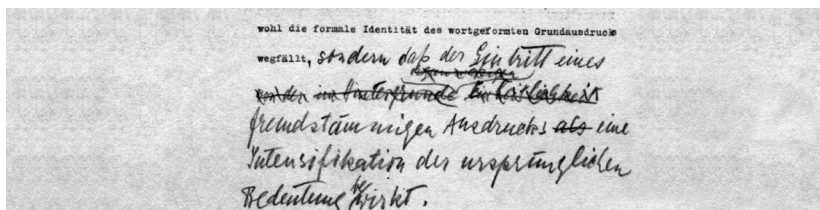 wohl die formale Identität des wortgeformten Grundausdrucks
wegfällt, sondern daß der Eintritt eines
fremdstämmigen Ausdrucks als eine
Intensifikation der ursprünglichen
Bedeutung bewirkt.